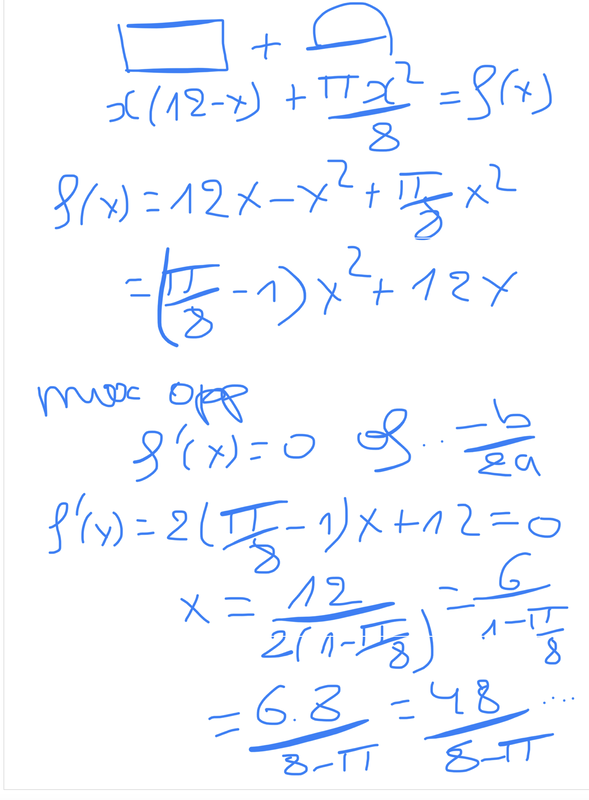 +
x(12-x) + πx²/8 = f(x)
f(x) = 12x - x² + π/8 x²
= (π/8 - 1) x² + 12x
max opp
f'(x) = 0 of .. -b/2a
f'(x) = 2(π/8 - 1)x + 12 = 0
x = 12/2(1-π/8) = 6/1-π/8
= 6.8/8-π = 48/8-π ....